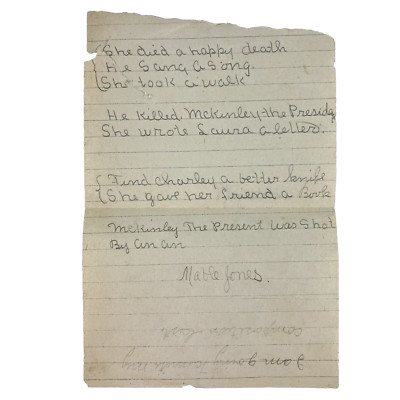 She died a happy death
He Sang a Song.
She took a walk
He killed. McKinley the Presid
She wrote Laura a letter.
Find Charley a better knife
She gave her friend a Book
McKinley The Present was Shot
By an an
Mable Jones.
composition
I am going